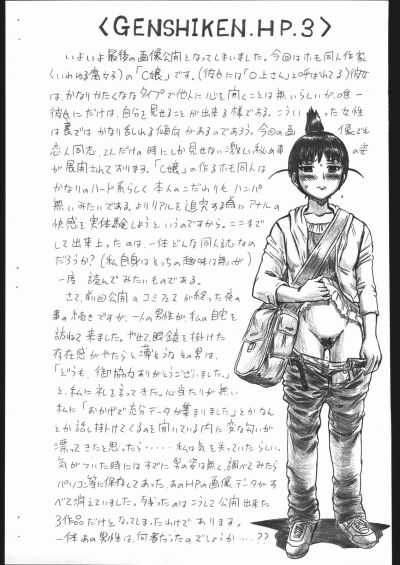 <GENSHIKEN.HP.3>
いよいよ最後の画像公開となってしまいました。今回はホモ同人作家
(いわゆる腐女子)の「C嬢」です。(彼氏には「○上さん」と呼ばれてる)彼女
は、かなりかたくななタイプで他人に心を開くことは無いらしいが、唯一
彼氏にだけは、自分を見せることが出来る様である。こういった女性
は裏ではかなり乱れる傾向があるのであろう。今回の画像でも
恋人同志、2人だけの時にしか見せない激しい秘め事の姿
が展開されております。「C嬢」の作るホモ同人は
かなりのハード系らしく本人のこだわりもハンパ
無いみたいである。よりリアルを追究する為にアナルの
快感を実体験しようというのですから。ここまで
して出来上ったのは、一体どんな同人誌なの
だろうか?(私自身はそっちの趣味は無いが)
一度読んでみたいものである。
さて、前回公開のコミフェスが終った夜の
事の続きですが、一人の男性が、私の自宅を
訪ねて来ました。やせて、眼鏡を掛けた
存在感がやたらと薄そうなその男は、
「どうも、御協力ありがとうございました。」
と、私に礼を言ってきた。心当たりが無い
私に「おかげで充分データが集まりました」とかなん
とか話し掛けてくるのを聞いている内に変な匂いが
漂ってきたと思ったら・・・・・私は気を失っていたらしい。
気がついた時にはすでに男の姿は無く、調べてみたら
パソコン等に保存してあった、あのHPの画像データがす
べて消えていました。残ったのはこうして公開出来た
3作品だけとなってしまったわけであります。
一体あの男性は、何者だったのでしょうか・・・・??